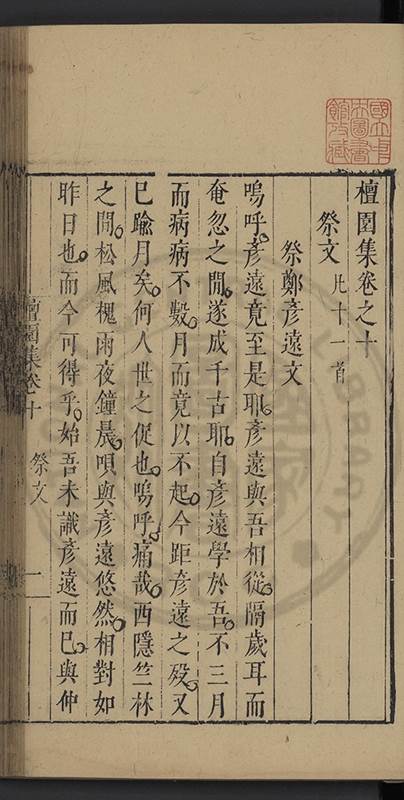 檀園集卷之十
祭文 凡十一首
祭鄭彥遠文
嗚呼彥遠竟至是耶彥遠與吾相從隔歲耳而
奄忽之間遂成千古耶自彥遠學於吾不三月
而病病不數月而竟以不起今距彥遠之歿又
已踰月矣何人世之促也嗚呼痛哉西隱竺林
之間松風槐雨夜鐘晨唄與彥遠悠然相對如
昨日也而今可得乎始吾未識彥遠而已與仲
檀園集卷十 祭文 一